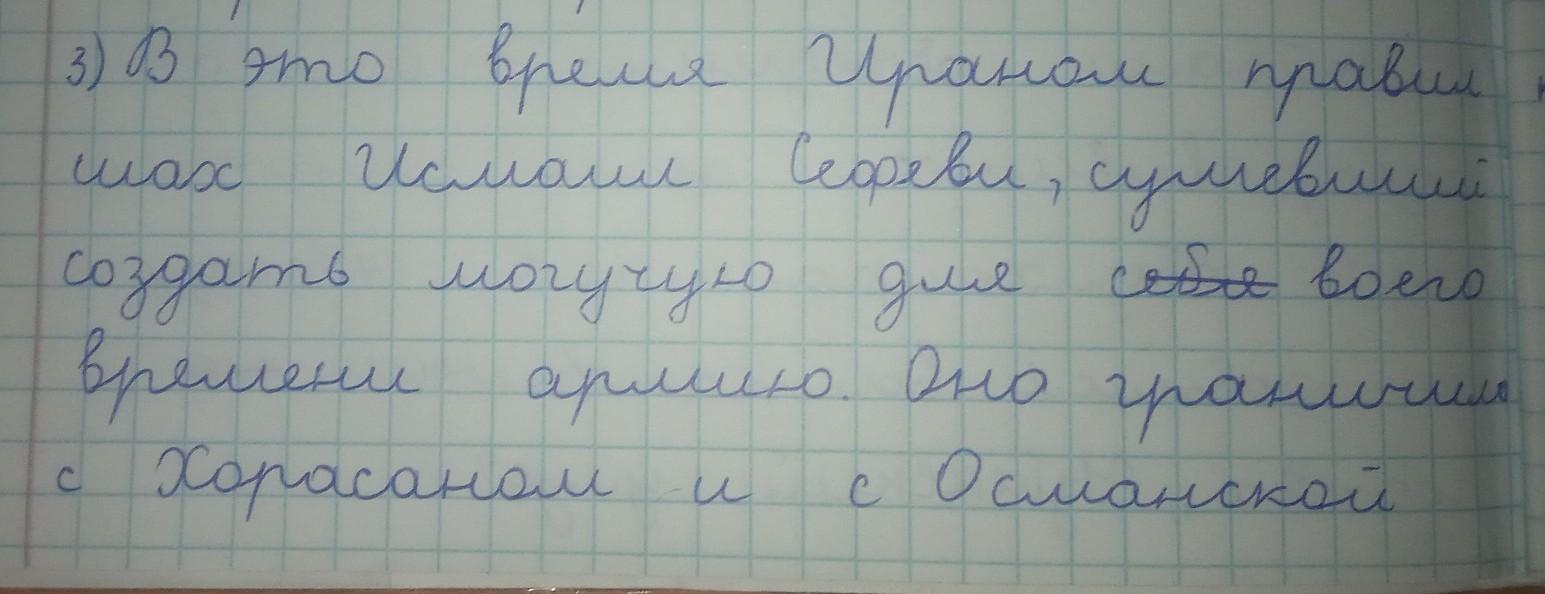 3) В это время Ираном правил
шах Исмаил Сефеви, сумевший
создать могучую для себя воего
времени армию. Оно граничило
с Хорасаном и с Османской